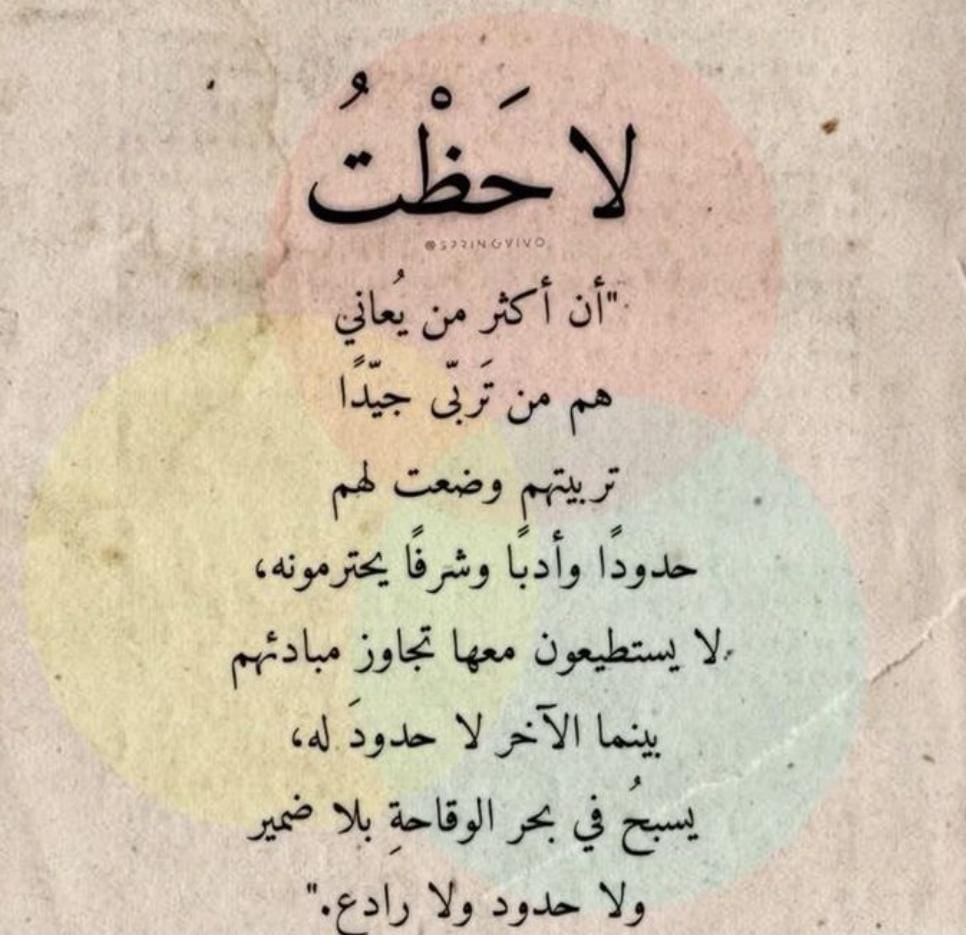 لاحَظْتُ
@SPRINGVIVO
"أن أكثر من يُعاني
هم من تَربّى جيّدًا
تربيتهم وضعت لهم
حدودًا وأدبًا وشرفًا يحترمونه،
لا يستطيعون معها تجاوز مبادئهم
بينما الآخر لا حدودَ له،
يسبحُ في بحر الوقاحةِ بلا ضمير
ولا حدود ولا رادع."